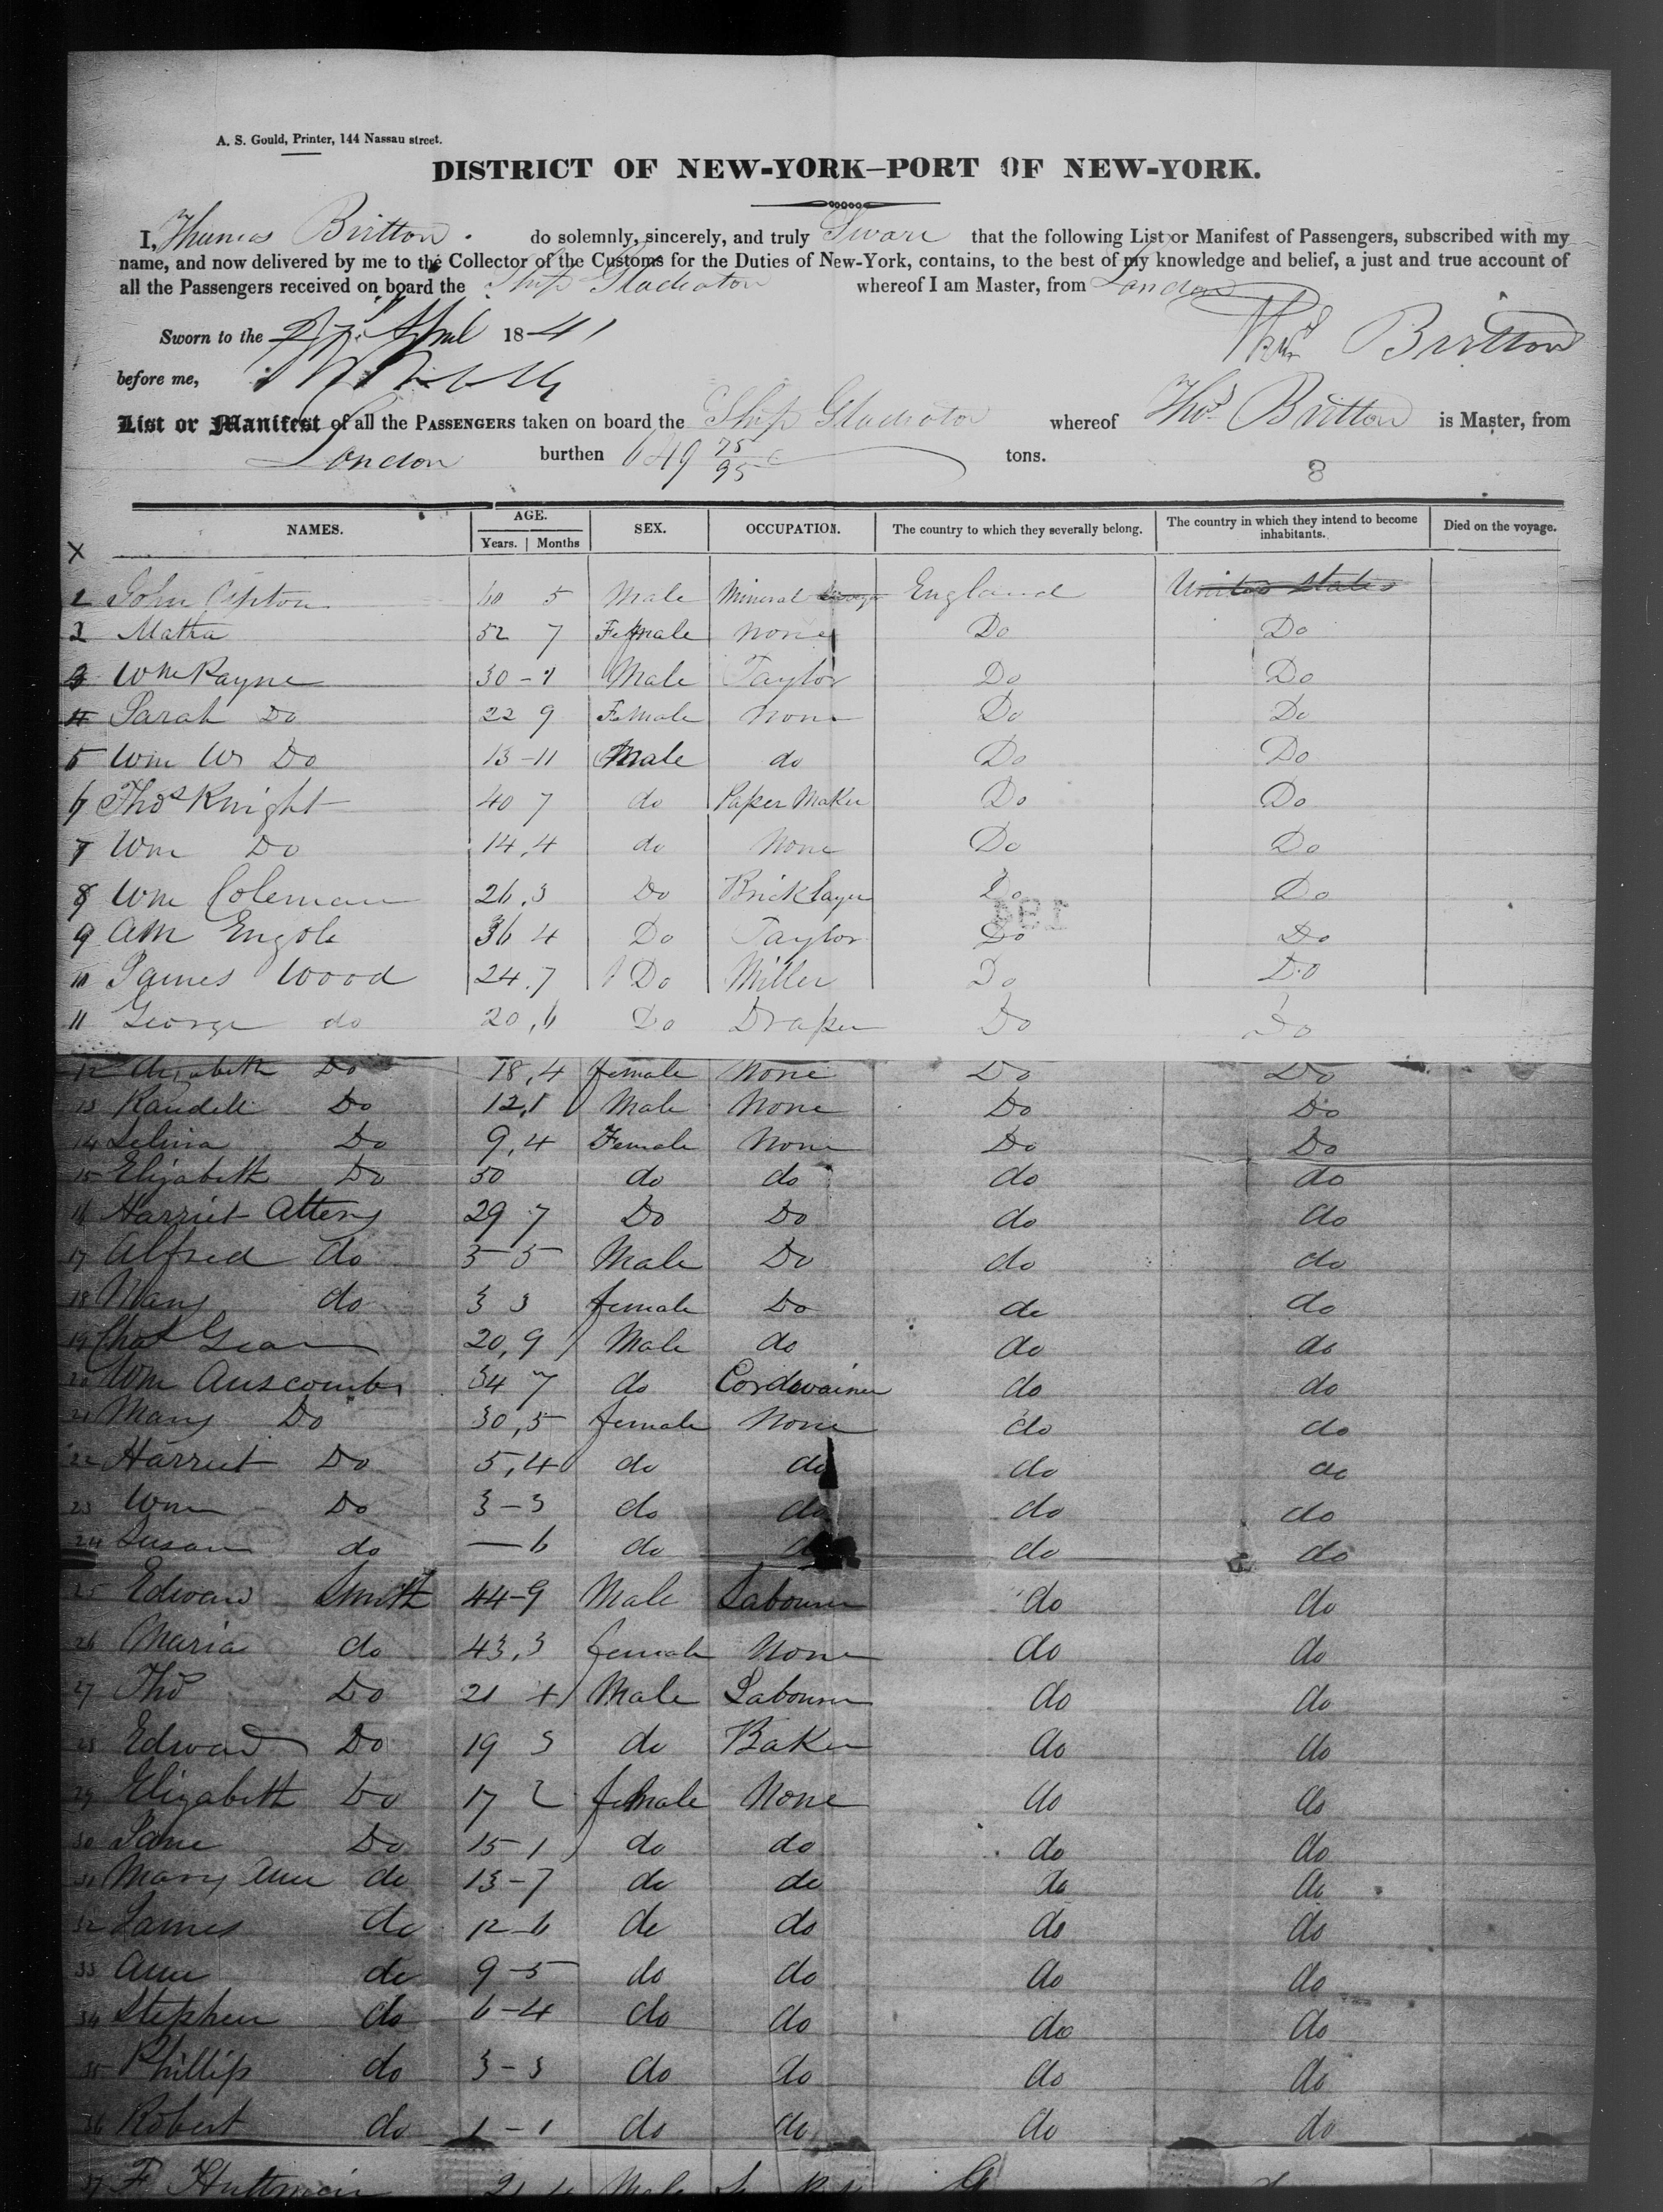 A. S. Gould, Printer, 144 Nassau street.
DISTRICT OF NEW-YORK–PORT OF NEW-YORK.
I, Thomas Britton do solemnly, sincerely, and truly Swear that the following List or Manifest of Passengers, subscribed with my
name, and now delivered by me to the Collector of the Customs for the Duties of New-York, contains, to the best of my knowledge and belief, a just and true account of
all the Passengers received on board the Ship Gladiator whereof I am Master, from London
Thos Britton
Sworn to the 27 April 1841
before me,
List or Manifest of all the PASSENGERS taken on board the Ship Gladiator whereof Thos Britton is Master, from
London burthen 649 75/95 tons.
8
NAMES. AGE. SEX. OCCUPATION. The country to which they severally belong. The country in which they intend to become inhabitants. Died on the voyage.
Years. Months
X
1 John Upton 60 5 Male Mineral England United States
2 Matha 52 7 Female none Do Do
3 Wm Payne 30 - 1 Male Taylor Do Do
4 Sarah Do 22 9 Female none Do Do
5 Wm W Do 13 - 11 Male do Do Do
6 Thos Knight 40 7 do Paper Maker Do Do
7 Wm Do 14, 4 do None Do Do
8 Wm Coleman 26, 3 Do Bricklayer Do Do
9 Engole 36 4 Do Taylor Do Do
10 James Wood 24, 7 Do Miller Do Do
11 George do 20, 6 Do Draper Do Do
12 Elizabeth Do 18, 4 female None Do Do
13 Randell Do 12, 1 Male None Do Do
14 Selina Do 9, 4 Female None Do Do
15 Elizabeth Do 50 do do do do
16 Harriet Atteny 29 7 Do Do do do
17 Alfred do 5 5 Male Do do do
18 Mary do 3 3 female Do do do
19 Chas 20, 9 Male do do do
20 Wm Auscombe 34 7 do Cordwainer do do
21 Mary Do 30, 5 female None do do
22 Harriet Do 5, 4 do do do do
23 Wm Do 3 - 3 do do do do
24 Susan do — 6 do do do do
25 Edward Smith 44 - 9 Male Labourer do do
26 Maria do 43, 3 female None do do
27 Thos Do 21 4 Male Labourer do do
28 Edward Do 19 3 do Baker do do
29 Elizabeth Do 17 2 female None do do
30 Jane Do 15 - 1 do do do do
31 Mary Ann do 13 - 7 do do do do
32 James do 12 - 6 do do do do
33 Ann do 9 - 5 do do do do
34 Stephen do 6 - 4 do do do do
35 Phillip do 3 - 3 do do do do
36 Robert do 1 - 1 do do do do
37 F Huttman Male